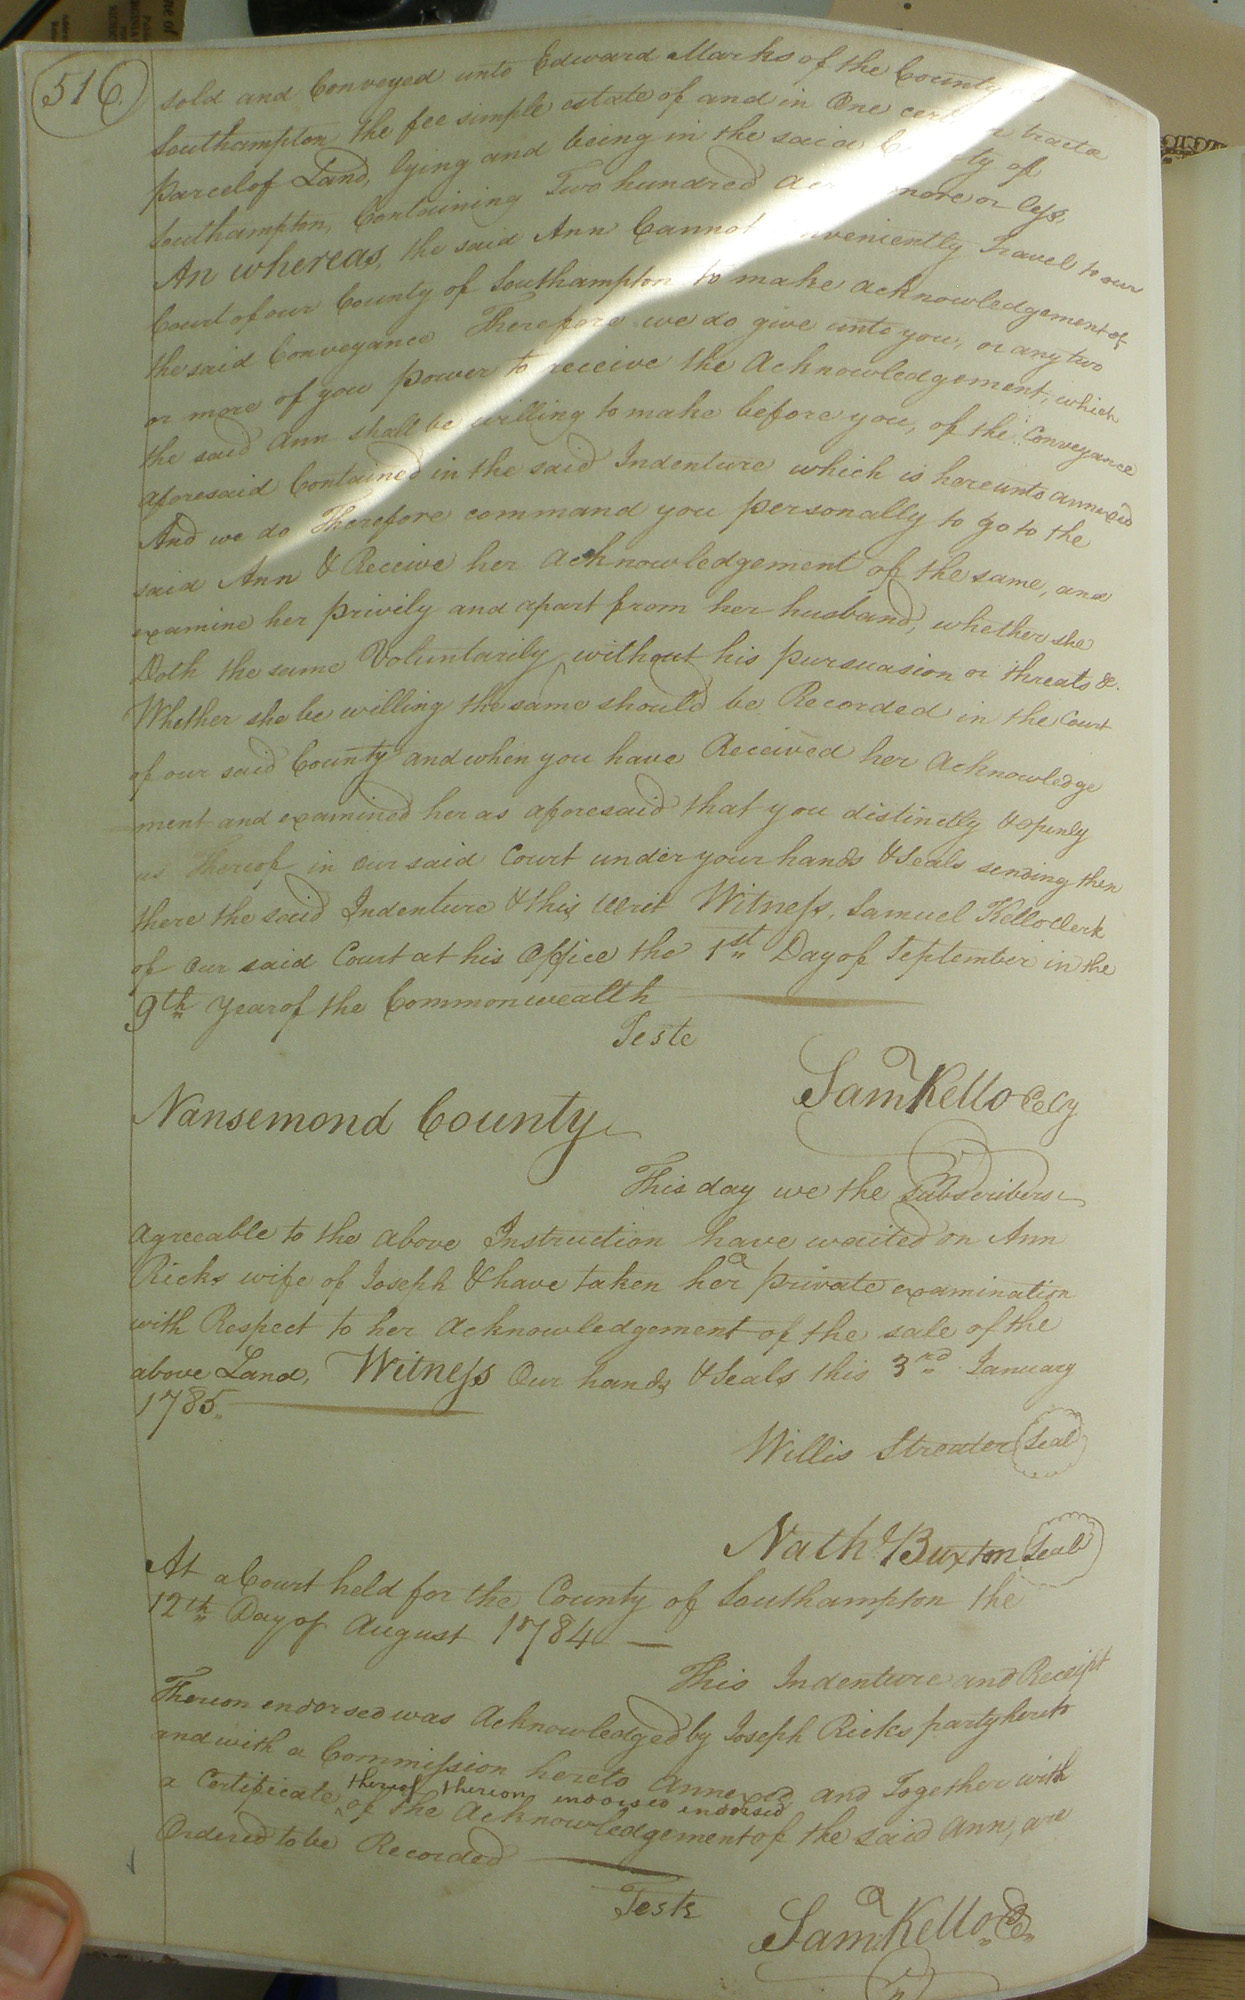 516.
sold and Conveyed unto Edward Marks of the County
Southampton the fee simple estate of and in One certain tract or
parcel of Land, lying and being in the said County of
Southampton, Containing Two hundred Acres more or less,
An whereas, the said Ann Cannot Conveniently Travel to our
Court of our County of Southampton to make acknowledgement of
the said Conveyance Therefore we do give unto you, or any two
or more of you power to receive the Acknowledgement, which
the said Ann shall be willing to make before you, of the Conveyance
aforesaid Contained in the said Indenture which is hereunto annexed
And we do Therefore command you personally to go to the
said Ann & Receive her acknowledgement of the same, and
examine her privily and apart from her husband, whether she
Doth the same Voluntarily without his pursuasion or threats &.
Whether she be willing the same should be Recorded in the Court
of our said County and when you have Received her Acknowledge
ment and examined her as aforesaid that you distinctly & openly
us Thereof in our said Court under your hands & Seals sending then
there the said Indenture & this Writ Witness, Samuel Kello Clerk
of Our said Court at his Office the 1st Day of September in the
9th year of the Commonwealth
Teste
Saml Kello C Cy
Nansemond County
This day we the Subscribers
agreeable to the above Instruction have waited on Ann
Ricks wife of Joseph & have taken her a private examination
with Respect to her acknowledgement of the sale of the
above Land, Witness Our hands & Seals this 3rd January
1785
Willis Streater Seal
Nathl Buxton Seal
At a Court held for the County of Southampton the
12th Day of August 1784
This Indenture and Receipt
Thereon endorsed was Acknowledged by Joseph Ricks party hereto
and with a Commission hereto annexed and Together with
thereof thereon endorsed endorsed
a Certificate of the Acknowledgement of the said Ann, are
Ordered to be Recorded
Teste
Saml Kello C